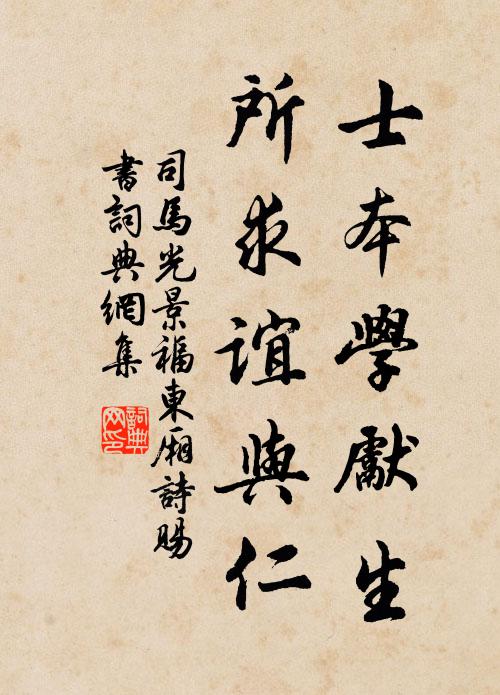 士本學獻生
所求誼與仁
司馬光景福東廂詩賜
書詞典網集
詞典网印